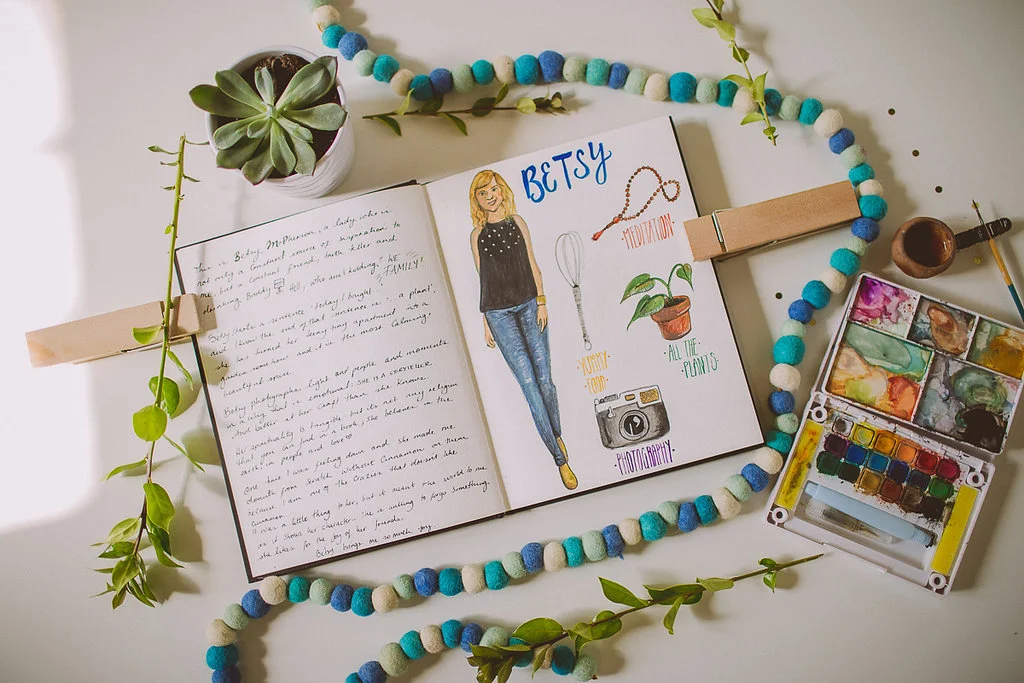 This is Betsy McPherson, a lady who is
not only a constant source of inspiration to
me, but a constant friend, truth teller and
drinking buddy. Hell, who am I kidding? WE
FAMILY!
Betsy starts a sentence "today I bought"
and then the end of that sentence is "a plant".
She has turned her teeny tiny apartment into a
garden somehow and it is the most calming,
beautiful space.
Betsy photographs light and people and moments
in a way that is emotional. SHE IS A STORYTELLER
and better at her craft than she knows.
Her spirituality is tangible but it's not any religion
that you can find in a book; she believes in the
earth, in people and love
One time I was feeling down and she made me
donuts from scratch without cinnamon on them
because I am one of the crazies that doesn't like
cinnamon.
It was a little thing to her, but it meant the world to me
as it shows her character. She is willing to forgo something
she likes for the joy of her friends.
Betsy brings me so much joy.
BETSY
·MEDITATION·
·YUMMY
FOOD·
·ALL THE
PLANTS·
·PHOTOGRAPHY·